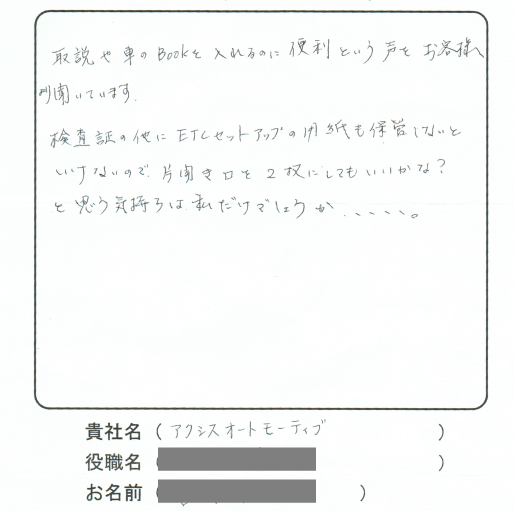 取説や車のBookを入れるのに便利という声をお客様
より聞いています。
検査証の他にETCセットアップの用紙も保管しないと
いけないので、片開き口を2枚にしてもいいかな?
と思う気持ちは私だけでしょうか、、、、、。
貴社名(アクシスオートモーティブ)
役職名( )
お名前( )